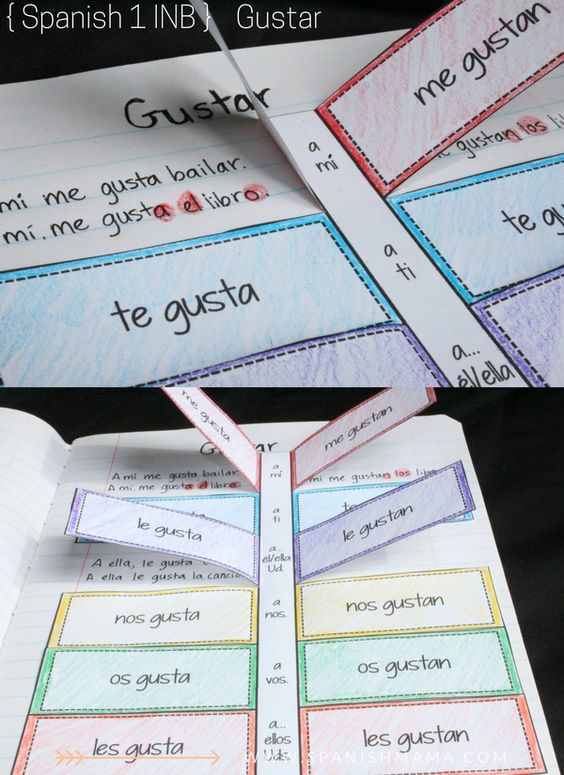 { Spanish 1 INB } Gustar
Gustar
me gustan
a
mí
mí me gusta bailar.
mí. me gusta el libro.
gustan los
te gusta
te gu
a
ti
a...
él/ella
Gustar
me gusta
me gustan
a
mí
A mí me gusta bailar
A mí. me gusta el libro.
mí me gustan los lib
le gusta
a
ti
le gustan
A ella, le gusta
A ella le gusta la canció
a...
él/ella
Ud.
nos gusta
a
nos.
nos gustan
os gusta
a
vos.
os gustan
les gusta
a...
ellos
Uds.
les gustan
WWW.SPANISHMAMA.COM